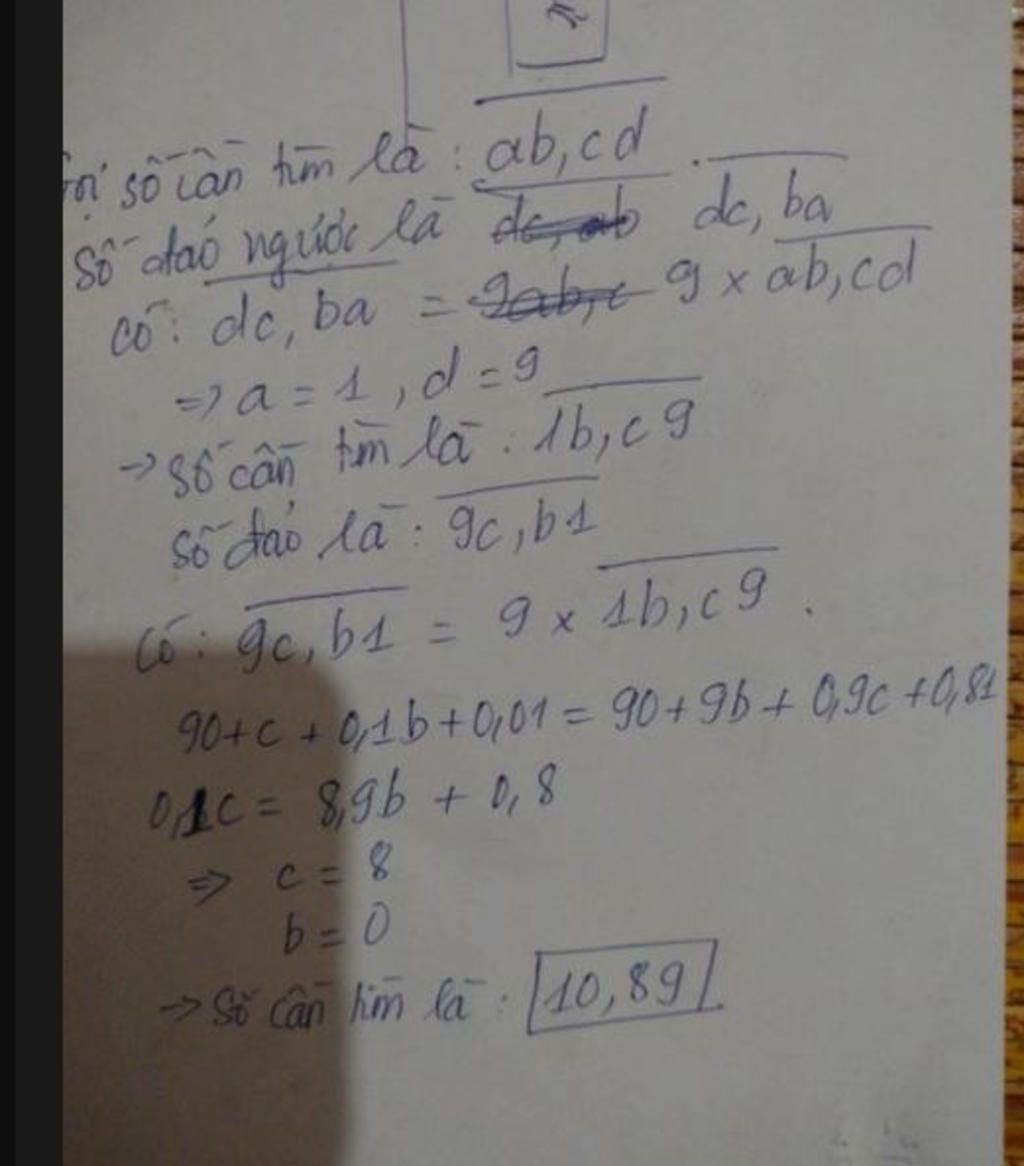 Gọi số cần tìm là : ab,cd
số đảo ngược là dc,ba
có : dc,ba = 9 x ab,cd
=> a = 1 , d = 9
-> số cần tìm là : 1b,c9
số đảo là : 9c,b1
có : 9c,b1 = 9 x 1b,c9 .
90+c + 0,1b+0,01 = 90+9b + 0,9c +0,81
0,1c = 8,9b + 0,8
=> c = 8
b = 0
-> số cần tìm là : 10,89